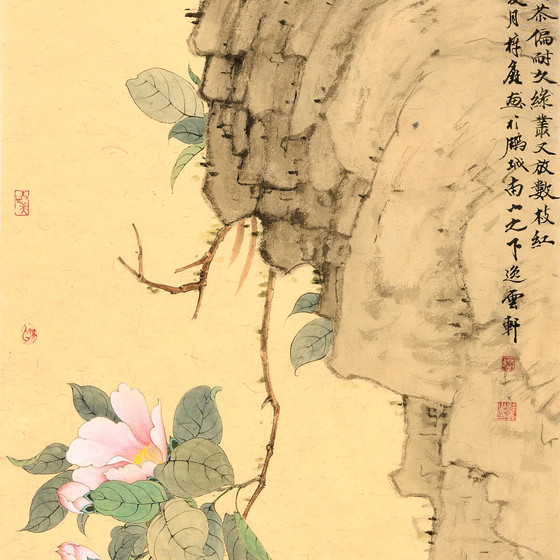 茶偏耐久綠叢又放數枝紅
月梓鑫畫於鵬城南山之下逸雲軒